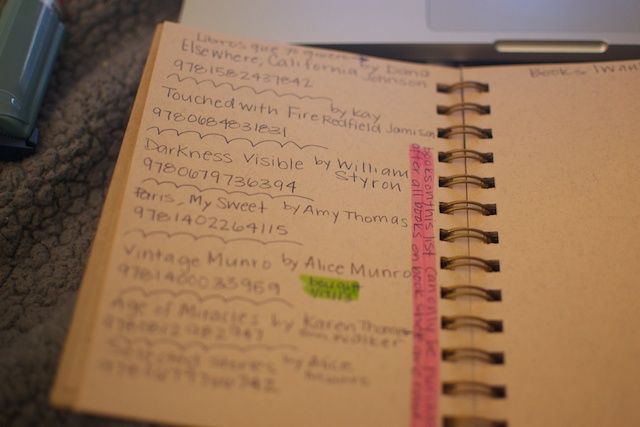 Libros que yo quiero
Elsewhere, California by Dana
Johnson
9781582437842
Touched with Fire by Kay
Redfield Jamison
9780684831831
Darkness Visible by William
Styron
9780679736394
Paris, My Sweet by Amy Thomas
9781402264115
Vintage Munro by Alice Munro
9781400033959
bought
Age of Miracles by Karen Thompson
Walker
by Alice
Munro
books on this list can only be
after all books on book
Books I Want